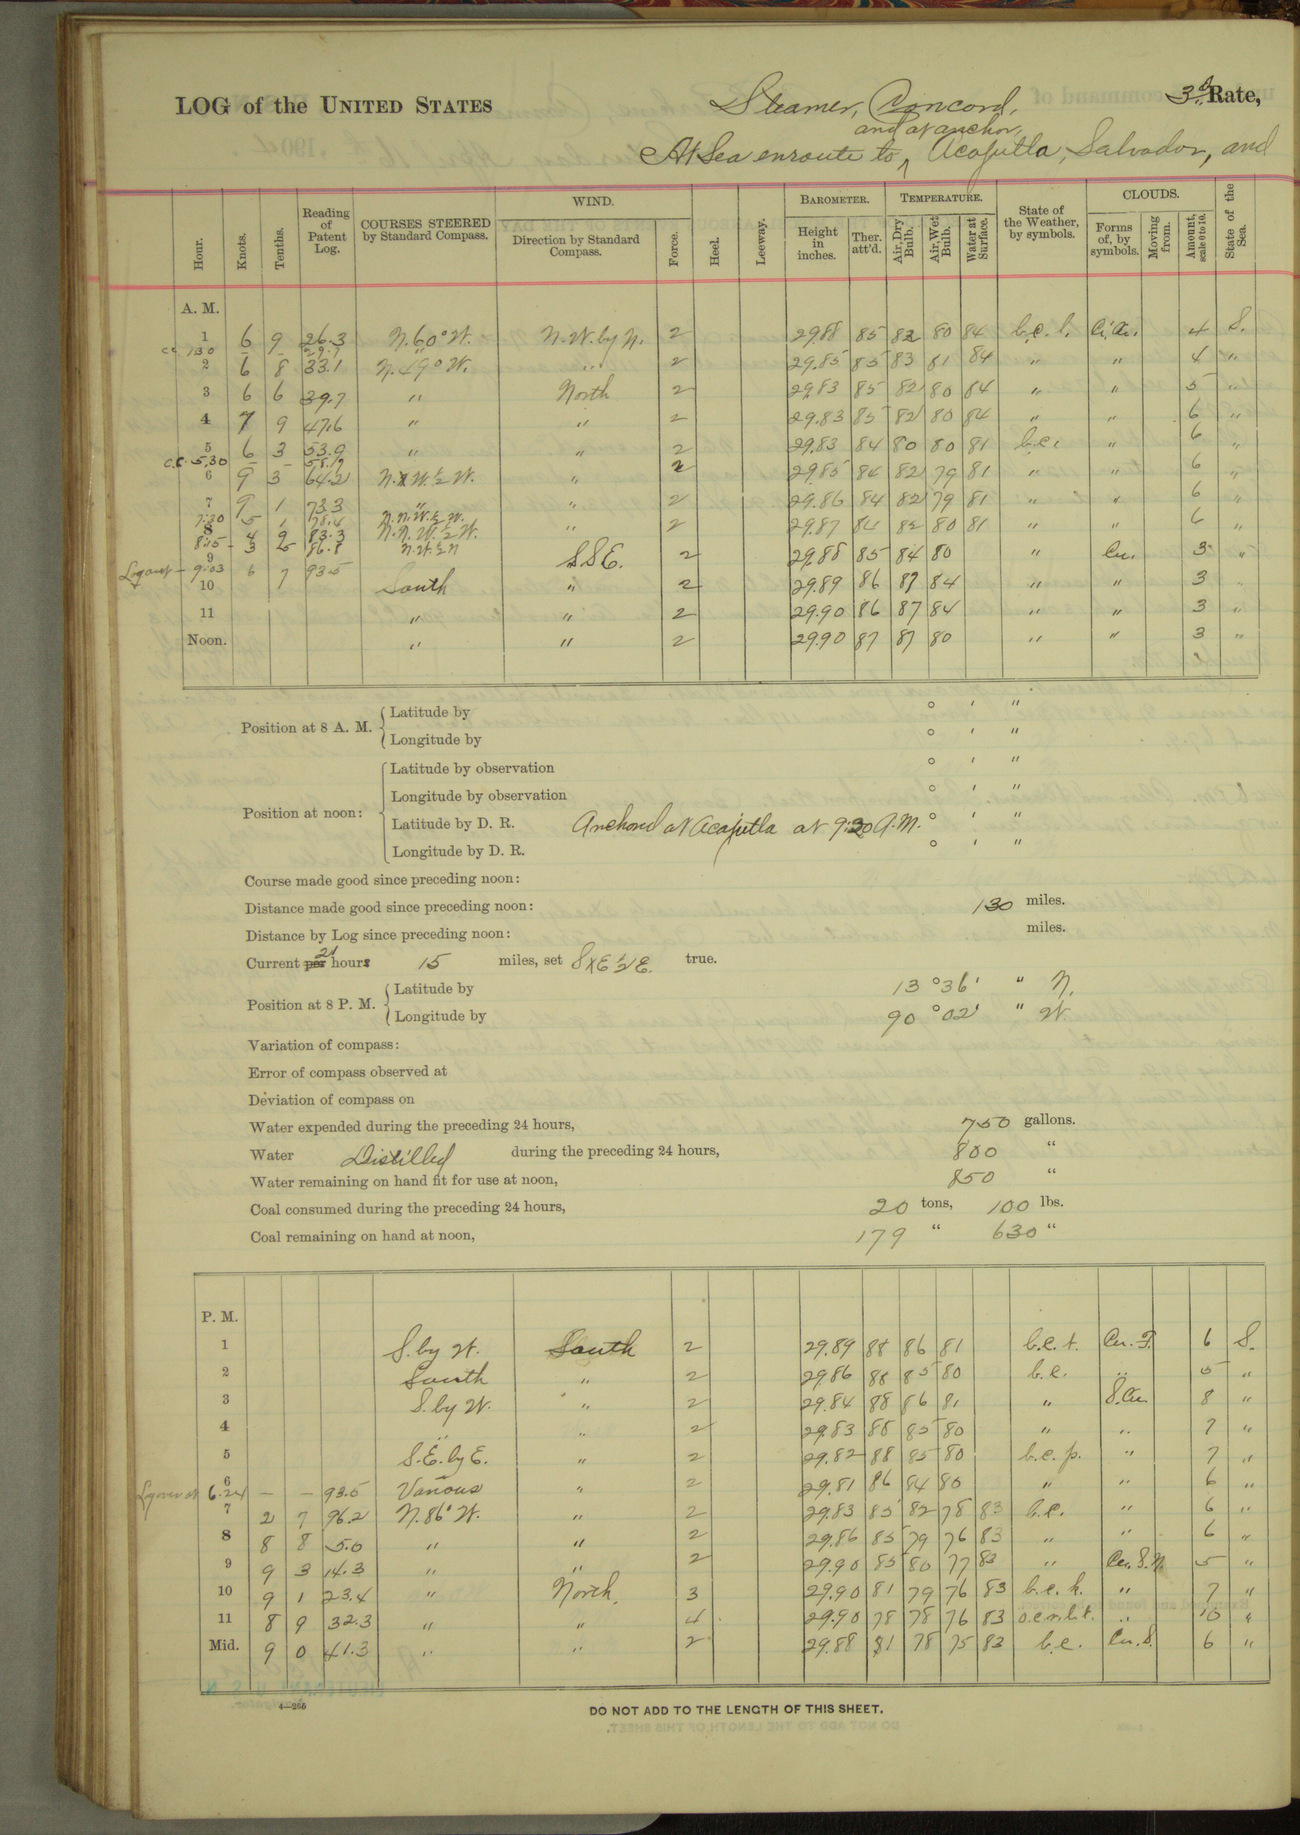 LOG of the UNITED STATES Steamer, Concord, 3d Rate,
and at anchor,
At Sea enroute to ^ Acajutla, Salvador, and
Hour. Knots. Tenths. Reading of Patent Log. COURSES STEERED by Standard Compass. WIND. Direction by Standard Compass. Force. Heel. Leeway. BAROMETER. Height in inches. Ther. att'd. TEMPERATURE. Air, Dry Bulb. Air, Wet Bulb. Water at Surface. State of the Weather, by symbols. CLOUDS. Forms of, by symbols. Moving from. Amount, scale 0 to 10. State of the Sea.
A. M.
1 6 9 26.3 N. 60° W. N.W. by N. 2 29.88 85 82 80 84 b.c.l. Ci.Cu. 4 S.
c.c. 1:30 – – 29.7 "
2 6 8 33.1 N. 49° W. " 2 29.85 85 83 81 84 " " 4 "
3 6 6 39.7 " North 2 29.83 85 82 80 84 " " 5 "
4 7 9 47.6 " " 2 29.83 85 82 80 84 " " 6 "
5 6 3 53.9 " " 2 29.83 84 80 80 81 b.c. " 6 "
c.c. 5.30 – – 58.9
6 9 3 64.2 N.W. ½ W. " 2 29.85 84 82 79 81 " " 6 "
7 9 1 73.3 " " 2 29.86 84 82 79 81 " " 6 "
7:30 5 1 78.4 N.N.W. ½ W.
8 4 9 83.3 N.N.W. ½ W. " 2 29.87 84 82 80 81 " " 6 "
8:15 – 3 5 86.8 N.W. ½ N
9 S.S.E. 2 29.88 85 84 80 " Cu. 3 "
Log out – 9:03 6 7 93.5
10 South " 2 29.89 86 87 84 " " 3 "
11 " " 2 29.90 86 87 84 " " 3 "
Noon. " " 2 29.90 87 87 80 " " 3 "
Position at 8 A. M. Latitude by ° ' "
Longitude by ° ' "
Position at noon: Latitude by observation ° ' "
Longitude by observation ° ' "
Latitude by D. R. Anchored at Acajutla at 9:30 A.M. ° ' "
Longitude by D. R. ° ' "
Course made good since preceding noon:
Distance made good since preceding noon: 130 miles.
Distance by Log since preceding noon: miles.
Current per 21 hours 15 miles, set SxE ½ E. true.
Position at 8 P. M. Latitude by 13 ° 36 ' " N.
Longitude by 90 ° 02 ' " W.
Variation of compass:
Error of compass observed at
Deviation of compass on
Water expended during the preceding 24 hours, 750 gallons.
Water Distilled during the preceding 24 hours, 800 "
Water remaining on hand fit for use at noon, 850 "
Coal consumed during the preceding 24 hours, 20 tons, 100 lbs.
Coal remaining on hand at noon, 179 " 630 "
P. M.
1 S. by W. South 2 29.89 88 86 81 b.c.t. Cu. 6 S.
2 South " 2 29.86 88 85 80 b.c. " 5 "
3 S. by W. " 2 29.84 88 86 81 " S.Cu. 8 "
4 " " 2 29.83 88 85 80 " " 7 "
5 S.E. by E. " 2 29.82 88 85 80 b.c.p. " 7 "
6 Various " 2 29.81 86 84 80 " " 6 "
Log over at 6.24 – – 93.5
7 2 7 96.2 N. 86° W. " 2 29.83 85 82 78 83 b.c. " 6 "
8 8 8 5.0 " " 2 29.86 85 79 76 83 " " 6 "
9 9 3 14.3 " " 2 29.90 85 80 77 83 " Cu.S.N. 5 "
10 9 1 23.4 " North 3 29.90 81 79 76 83 b.c.h. " 7 "
11 8 9 32.3 " " 4 29.90 78 78 76 83 " 10 "
Mid. 9 0 41.3 " " 2 29.88 81 78 75 83 b.c. Cu.S. 6 "
4—266
DO NOT ADD TO THE LENGTH OF THIS SHEET.